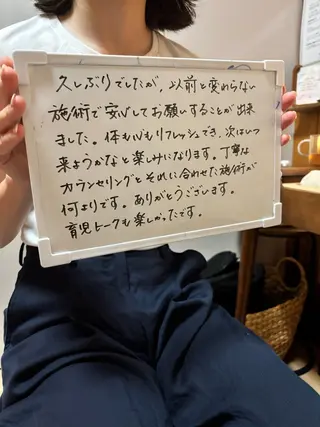 久しぶりでしたが、以前と変わらない
施術で安心してお願いすることが出来
ました。体も心もリフレッシュでき、次はいつ
来ようかなと楽しみになります。丁寧な
カウンセリングとそれに合わせた施術が
何よりです。ありがとうございます。
育児トークも楽しかったです。